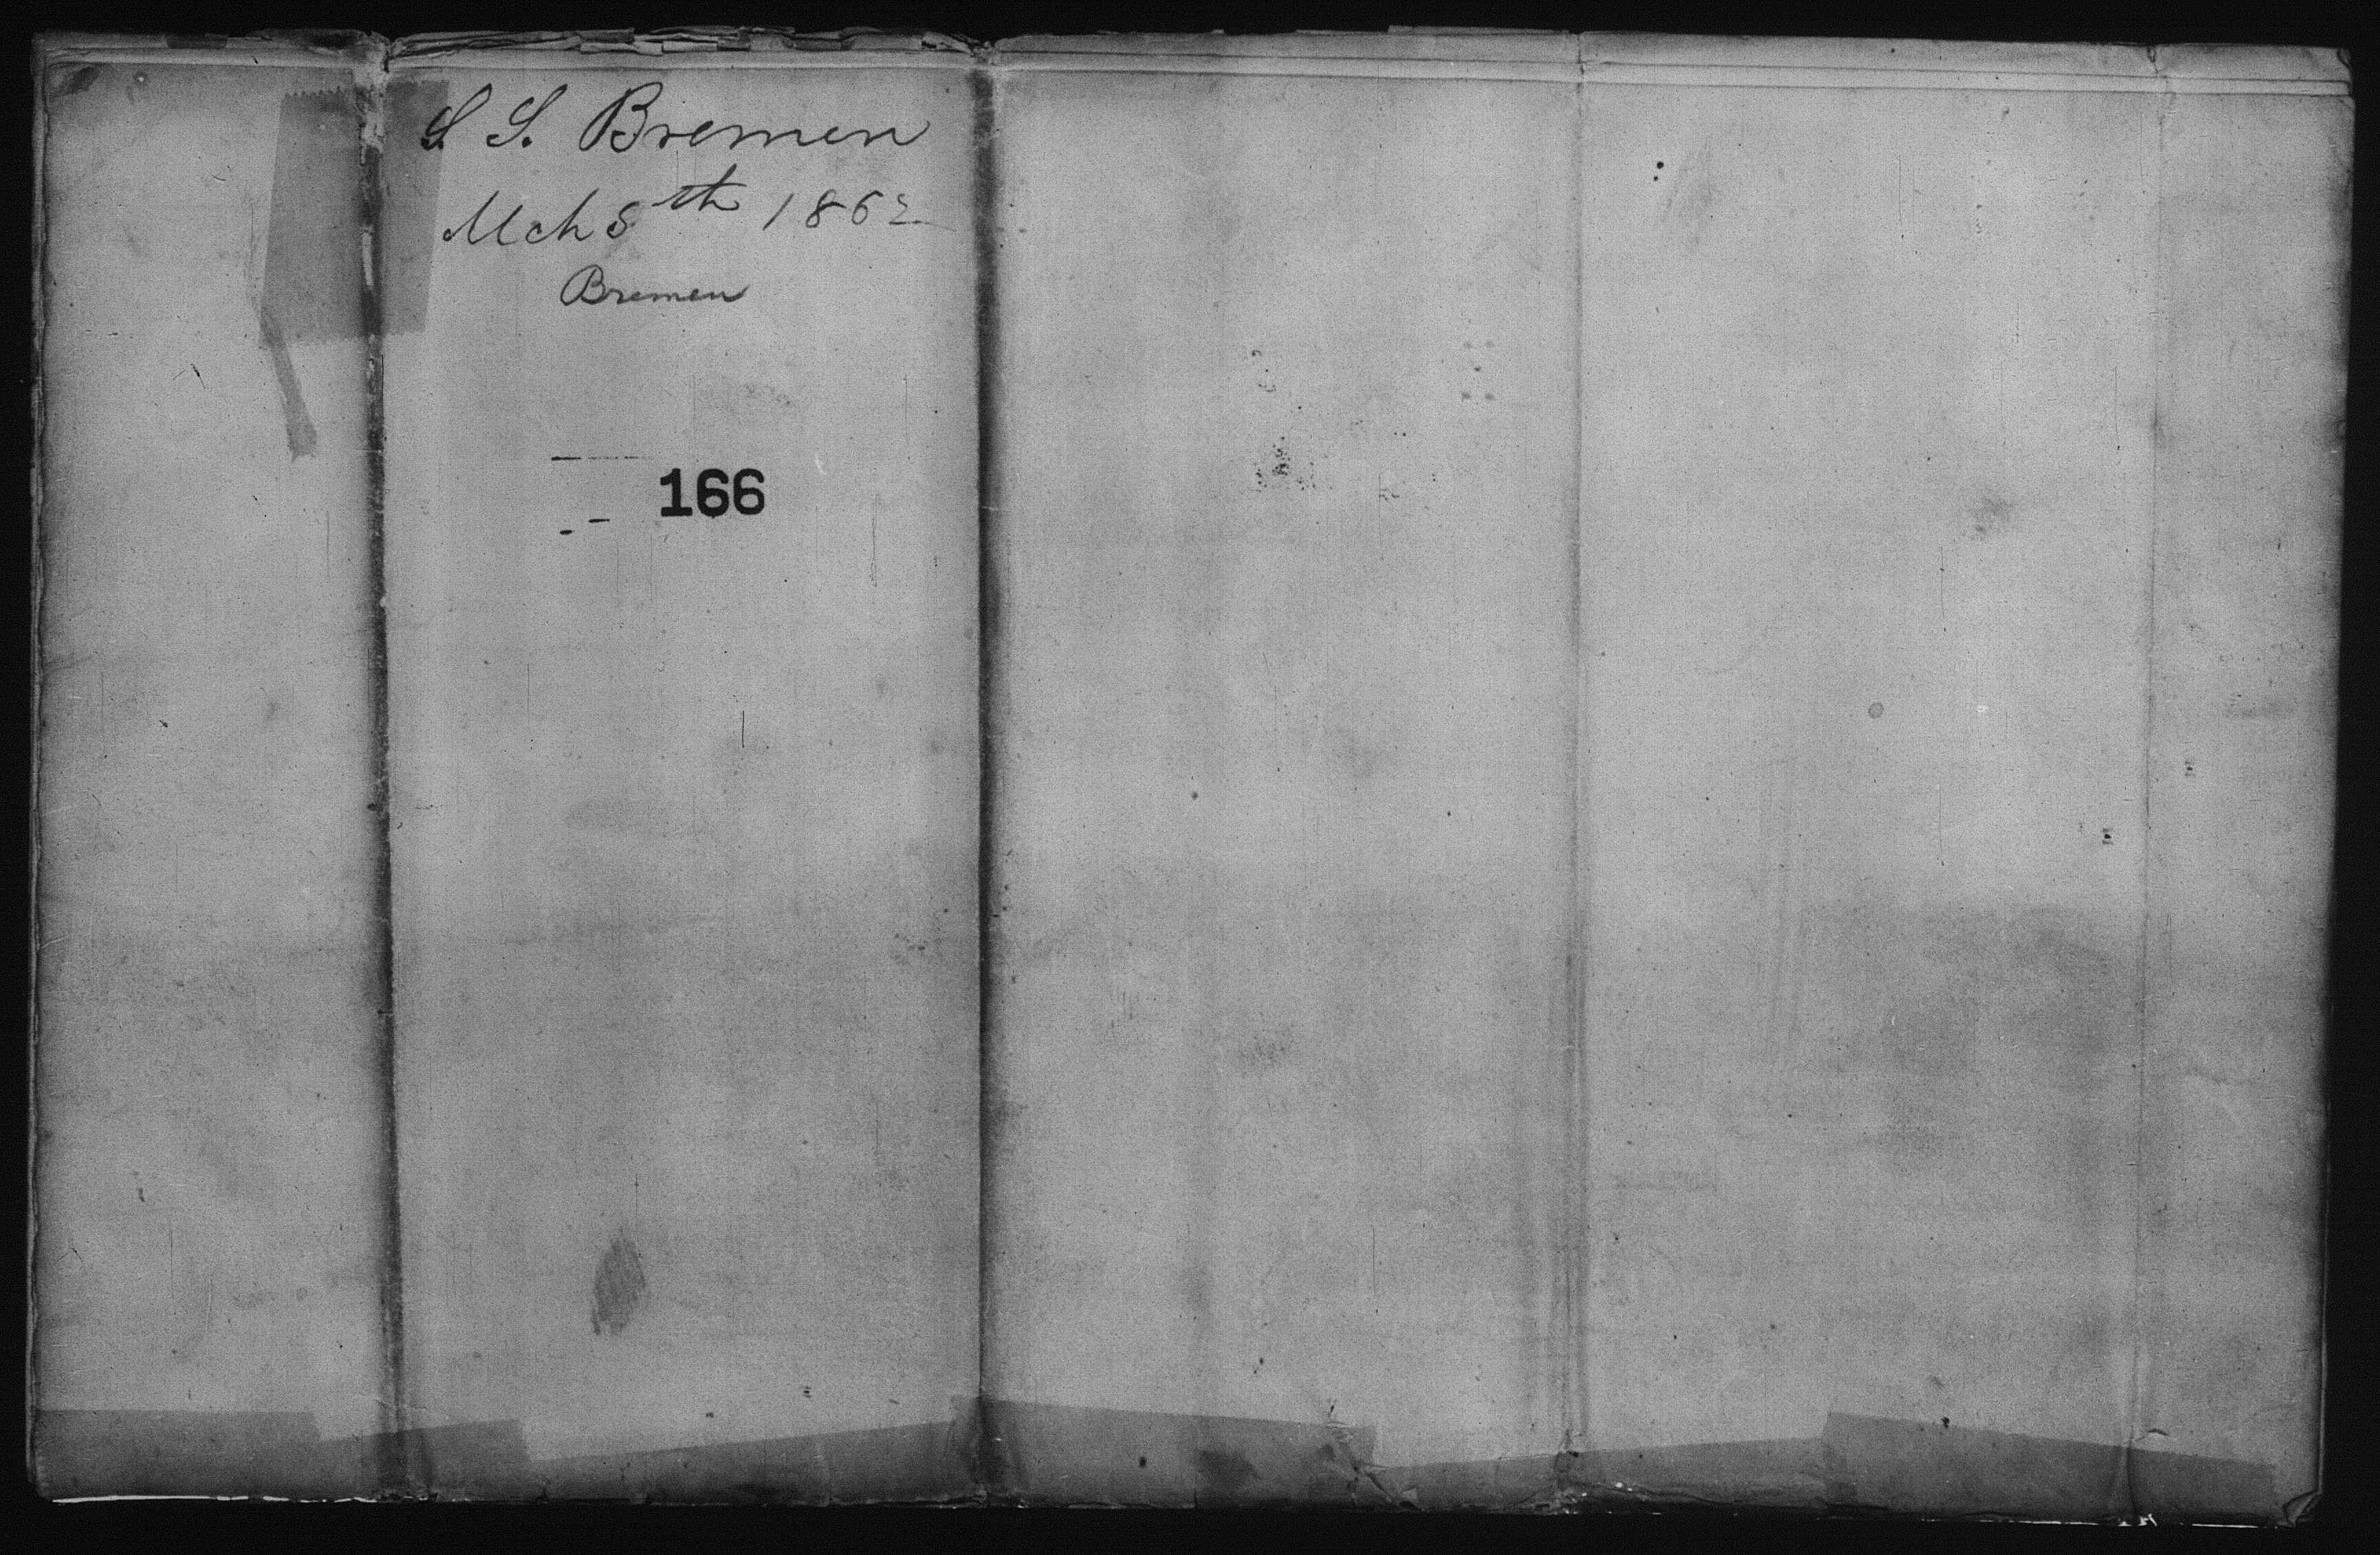 S. S. Bremen
Mch 5th 1862
Bremen
166